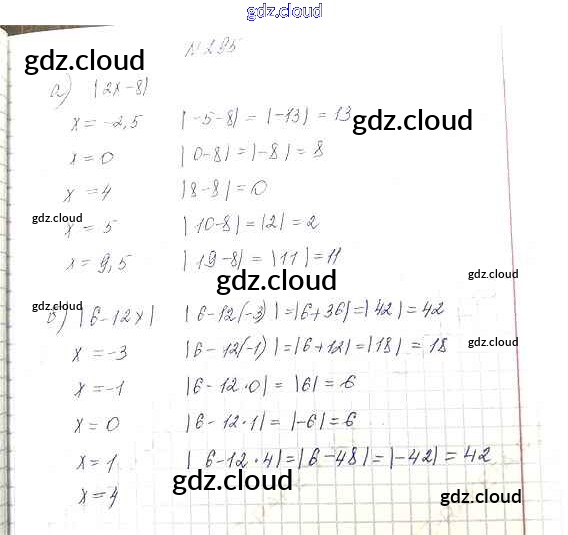 gdz.cloud
N 295
gdz.cloud
а) |2x-8|
x = -2,5 |-5-8| = |-13| = 13
gdz.cloud
x = 0 |0-8| = |-8| = 8
x = 4 |8-8| = 0
gdz.cloud
x = 5 |10-8| = |2| = 2
x = 9,5 |19-8| = |11| = 11
gdz.cloud
gdz.cloud
gdz.cloud
в) |6-12x| |6-12(-3)| = |6+36| = |42| = 42
x = -3 |6-12(-1)| = |6+12| = |18| = 18
gdz.cloud
x = -1 |6-12·0| = |6| = 6
x = 0 |6-12·1| = |-6| = 6
x = 1 |6-12·4| = |6-48| = |-42| = 42
gdz.cloud
x = 4
gdz.cloud